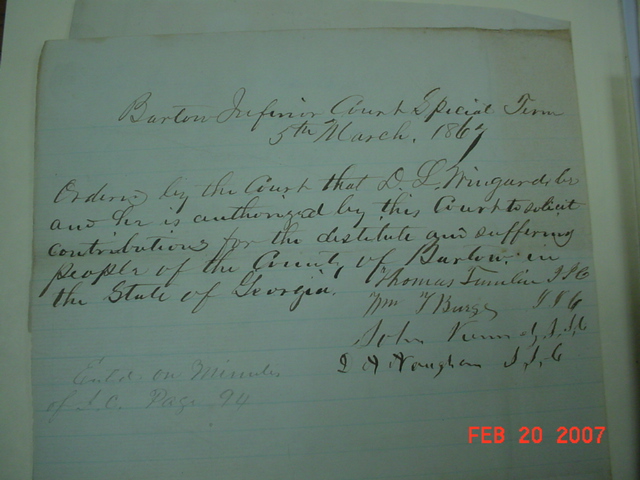 Bartow Inferior Court Special Term
5th March, 1867
Ordered by the Court that D. L. Wingard be
and he is authorized by this Court to solicit
contributions for the destitute and suffering
people of the County of Bartow in
the State of Georgia.
Thomas Tumlin J I C
Wm T Burge J I C
John J. I. C
J I C
Entd. on Minutes
of I. C. Page 94
FEB 20 2007